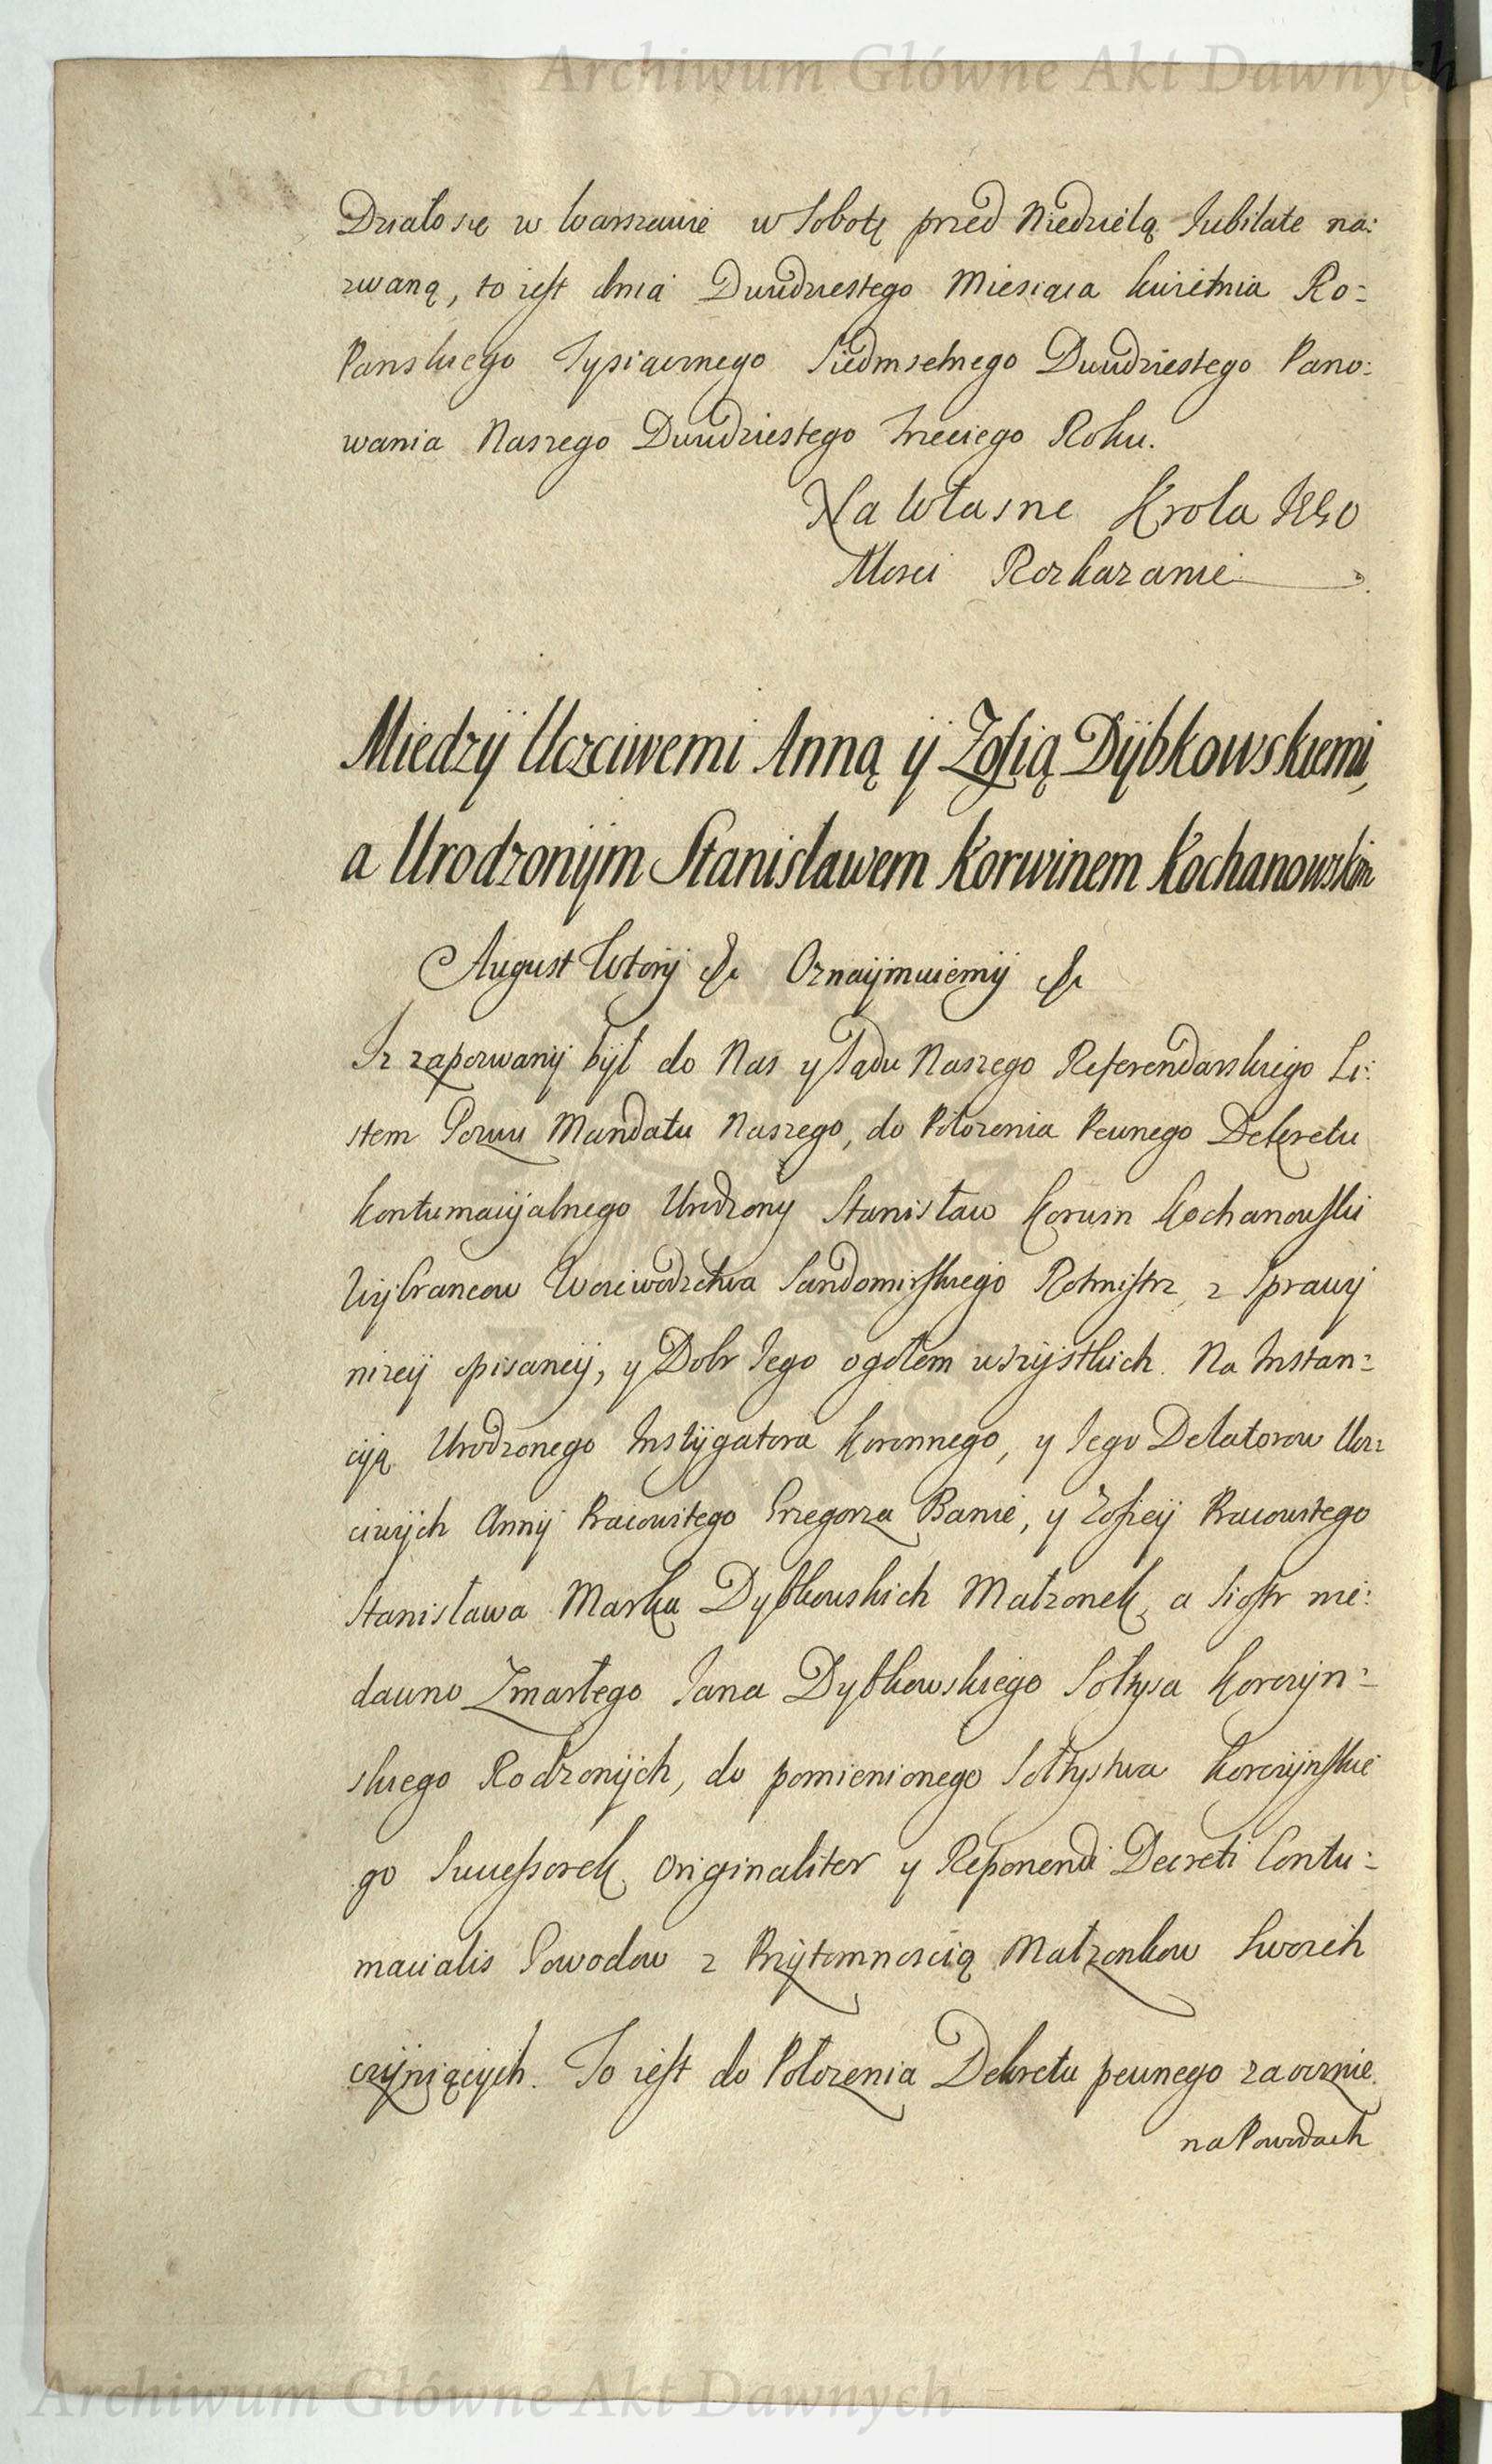 Archiwum Główne Akt Dawnych
Działo się w Warszawie w Sobotę przed Niedzielą Jubilate na:
zwaną, to iest dnia Dwudziestego Miesiąca kwietnia Ro:
Panskiego Tysiącznego Siedmsetnego Dwudziestego Pano:
wania Naszego Dwudziestego trzeciego Roku.
Na własne Krola JEGO
Mosci Rozkazanie
Miedzÿ Uczciwemi Anną ÿ Zofią Dÿbkowskiemi,
a Urodzonÿm Stanisławem Korwinem Kochanowskim
August Wtorÿ &c Oznaÿmuiemÿ &c
Iz zapozwanÿ bÿł do Nas y Sądu Naszego Referendarskiego Li:
stem Pozwu Mandatu Naszego, do Położenia Pewnego Dekretu
kontumacÿalnego Urodzony Stanisław Korwin Kochanowski
Wÿbrancow Woiewodztwa Sandomirskiego Rotmistrz, z Sprawÿ
nizeÿ opisaneÿ, y Dobr Iego ogołem wszÿstkich. Na Instan:
cÿą Urodzonego Instÿgatora Koronnego, y Iego Delatorow Ucz:
ciwÿch Annÿ Pracowitego Grzegorza Banie, y Zofieÿ Pracowitego
Stanisława Marka Dybkowskich Małzonek, a Siostr nie:
dawno Zmarłego Iana Dybkowskiego Sołtysa Korczÿn:
skiego Rodzonÿch, do pomienionego Sołtystwa Korczÿnskie
go Successorek originaliter y Reponendi Decreti Contu:
macialis Powodow z Przÿtomnoscią Małzonkow Swoich
czÿniącÿch. To iest do Położenia Dekretu pewnego zaocznie
na Powodach
Archiwum Główne Akt Dawnych